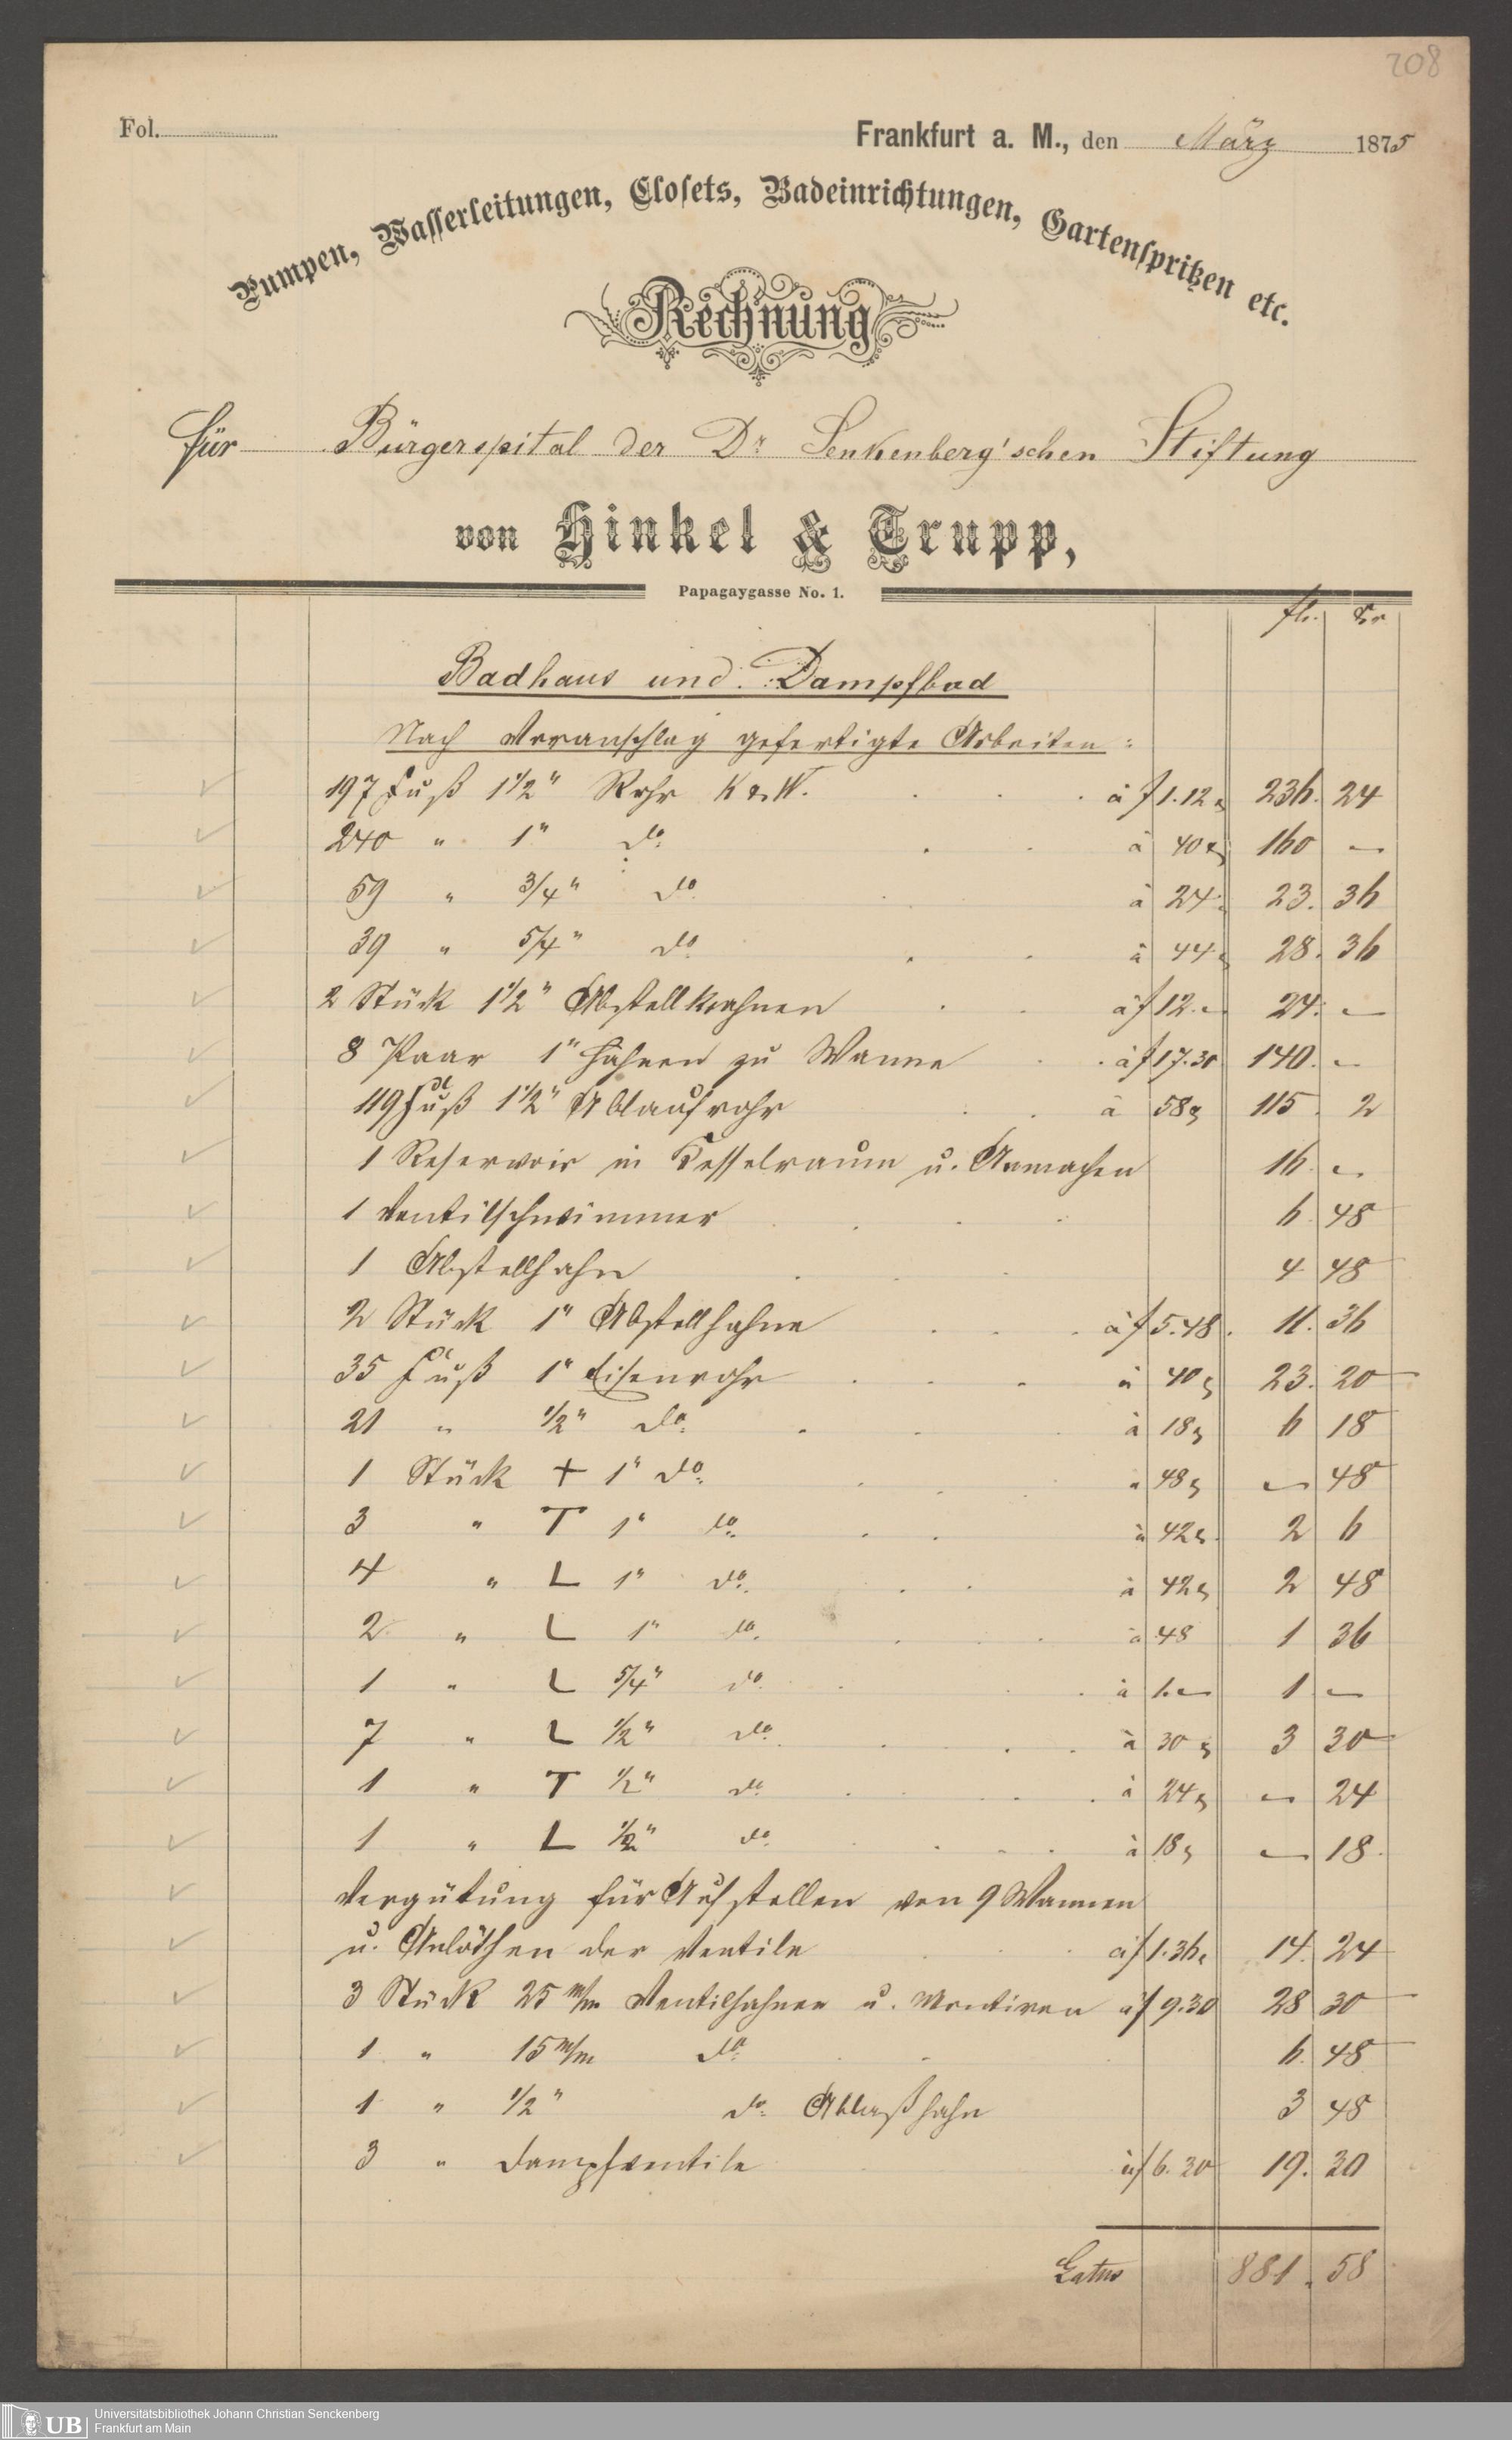 208
Fol.
Frankfurt a. M., den März 1875
Pumpen, Wasserleitungen, Closets, Badeinrichtungen, Gartenspritzen etc.
Rechnung
für Bürgerspital der Dr Senkenberg'schen Stiftung
von Hinkel & Trupp,
Papagaygasse No. 1.
fl. Kr
Badhaus und Dampfbad
Nach Voranschlag gefertigte Arbeiten:
197 Fuß 1 1/2" Rohr K & W. à f 1.12 236. 24
240 " 1" do à 40 160 —
59 " 3/4" do à 24 23. 36
39 " 5/4" do à 44 28. 36
2 Stück 1 1/2" Abstellkrahnen à f 12.— 24. —
8 Paar 1" Hahnen zu Wanne à f 17.30 140. —
119 Fuß 1 1/2" Ablaufrohr à 58 115. 2
1 Reservoir in Kesselraum u. Anmachen 16. —
1 Ventilschwimmer 6. 48
1 Abstellhahn 4 48
2 Stück 1" Abstellhahne à f 5.48. 11. 36
35 Fuß 1" Eisenrohr à 40 23. 20
21 " 1/2" do à 18 6 18
1 Stück + 1" do à 48 — 48
3 " T 1" do à 42 2 6
4 " L 1" do à 42 2 48
2 " L 1" do à 48 1 36
1 " L 5/4" do à 1.— 1 —
7 " L 1/2" do à 30 3 30
1 " T 1/2" do à 24 — 24
1 " L 1/2" do à 18 — 18.
Vergütung für Aufstellen von 9 Wannen
u. Anlöthen der Ventile à f 1.36 14. 24
3 Stück 25 m/m Ventilhahnen u. Montiren à f 9.30 28 30
1 " 15 m/m do 6. 48
1 " 1/2" do Ablaßhahn 3 48
3 " Dampfventile à f 6.30 19. 30
Latus 881. 58
UB
Universitätsbibliothek Johann Christian Senckenberg
Frankfurt am Main